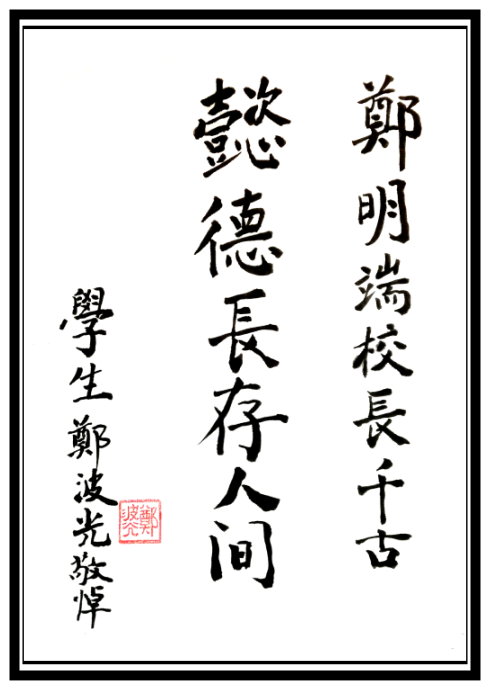 鄭明端校長千古
懿德長存人间
學生鄭波光敬悼
鄭波光